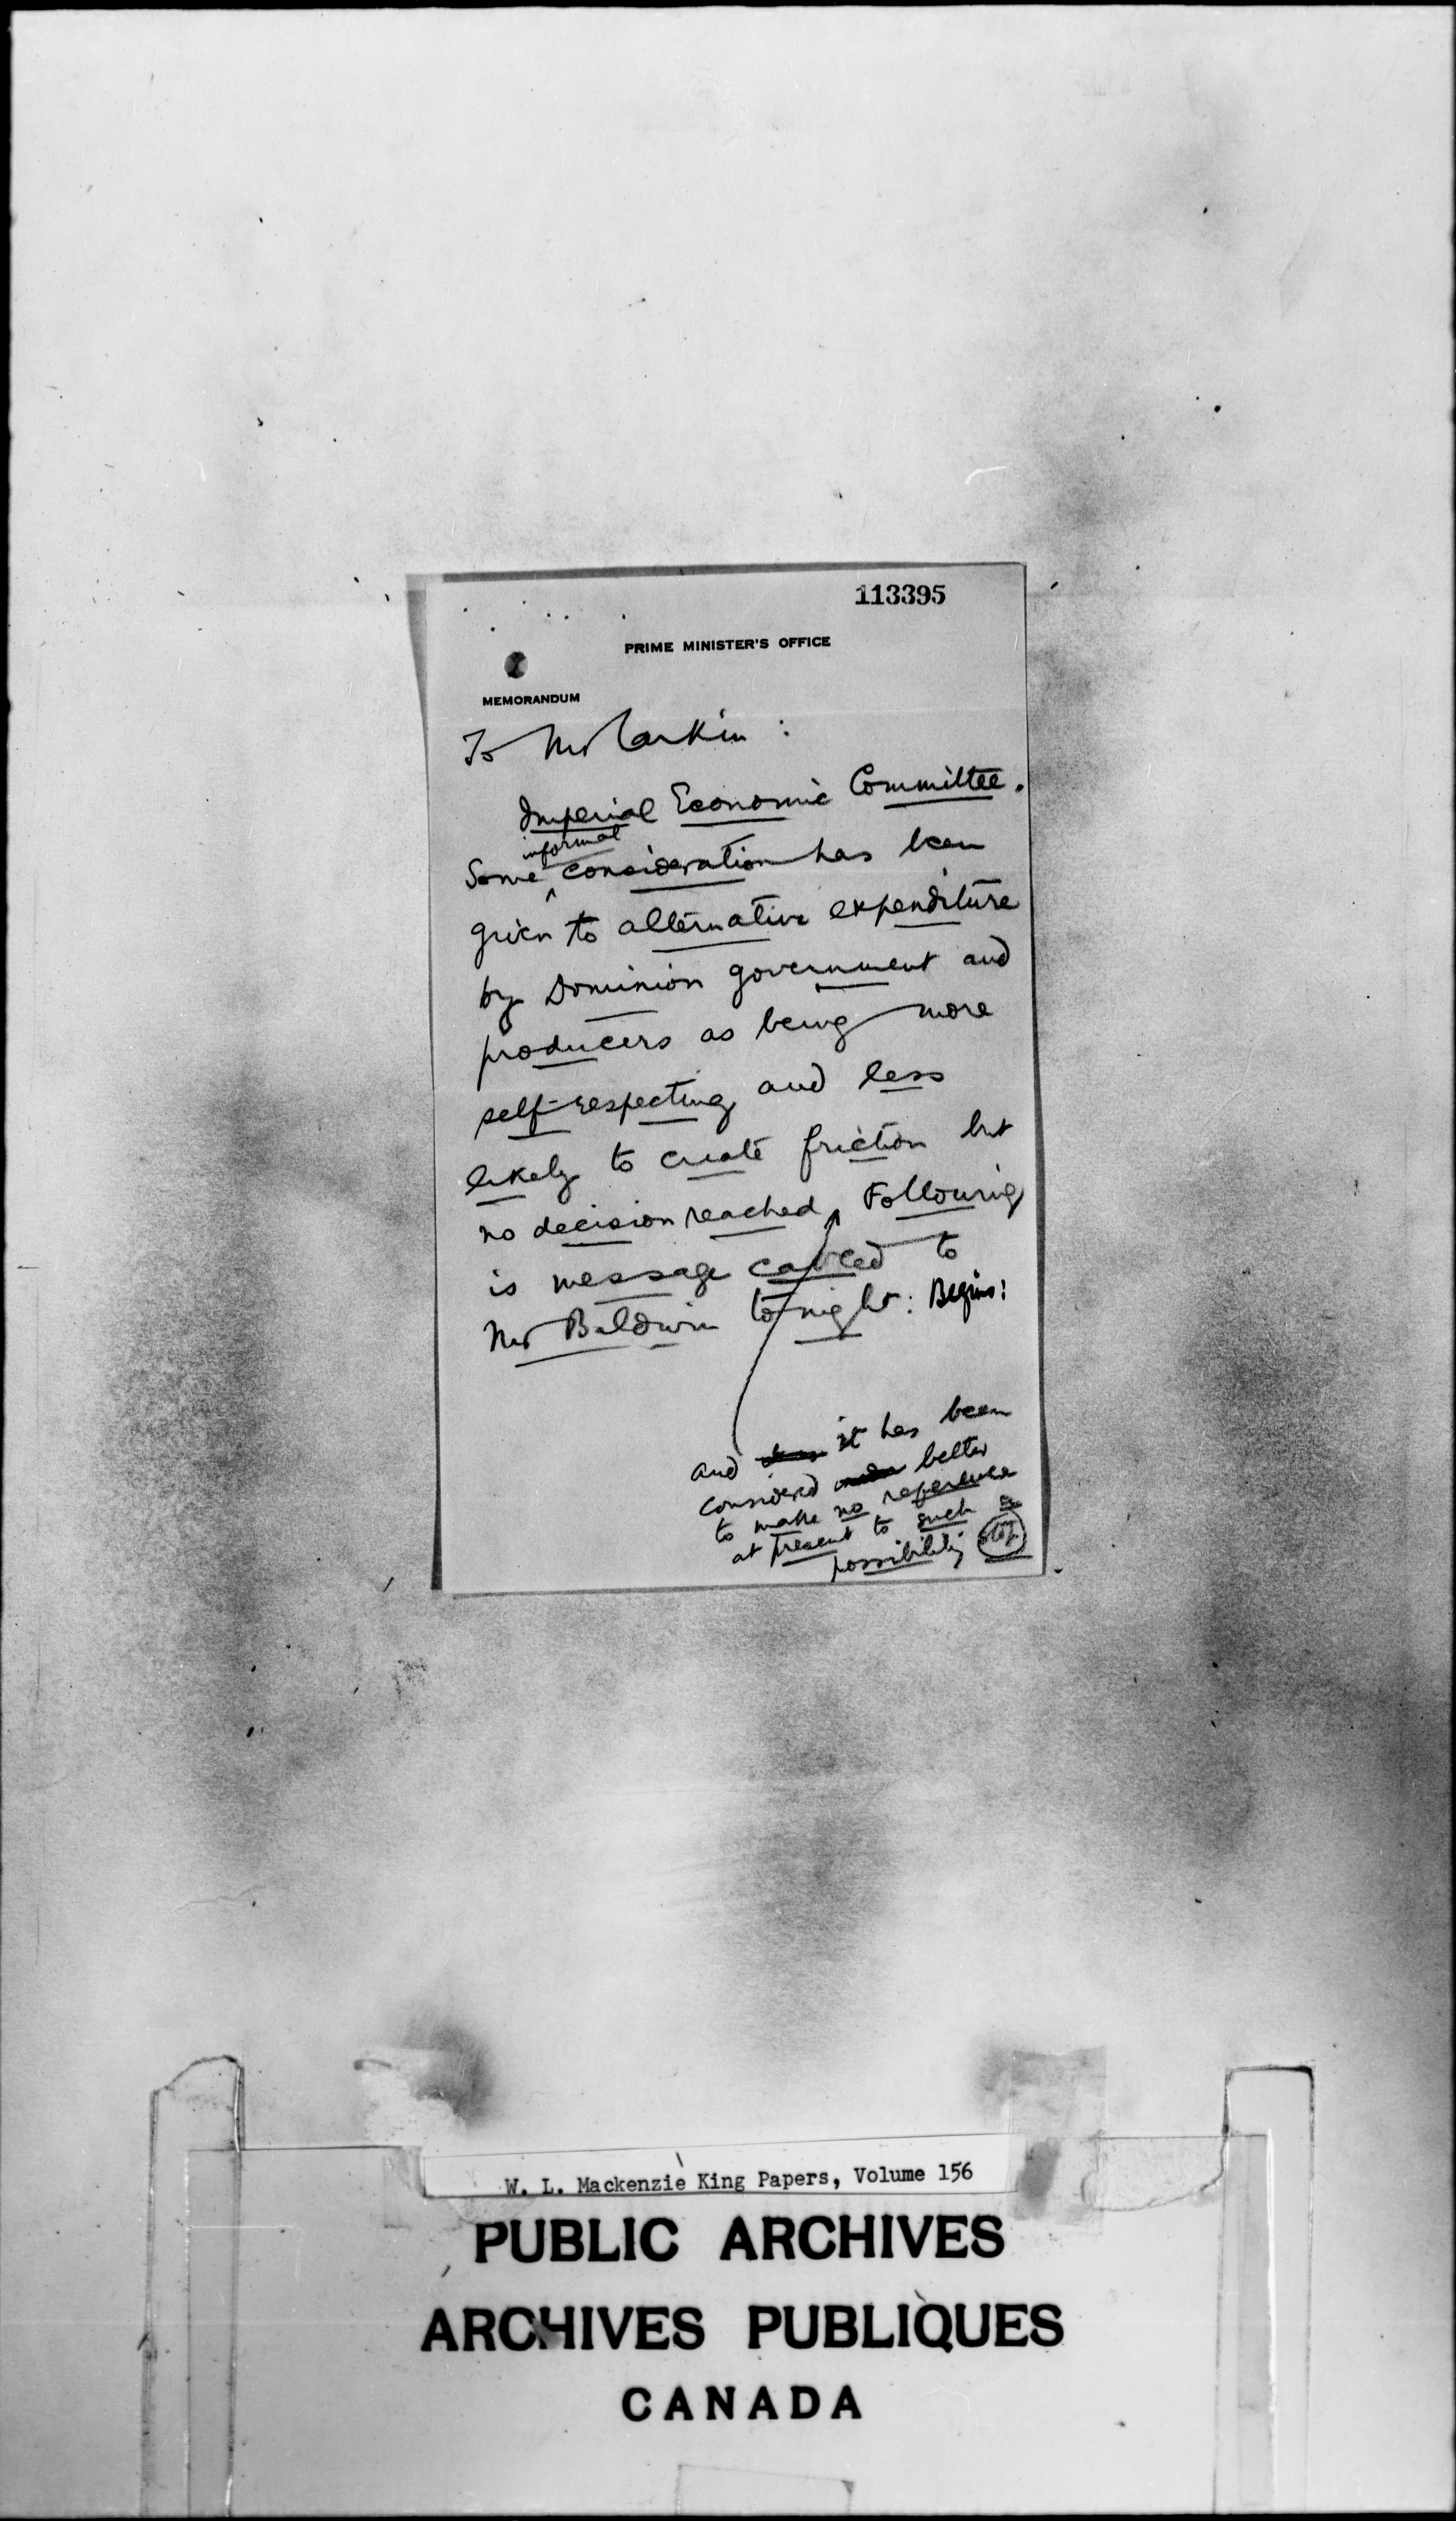 113395
PRIME MINISTER'S OFFICE
MEMORANDUM
To Mr Larkin :
Imperial Economic Committee.
informal
Some consideration has been
given to alternative expenditure
by Dominion government and
producers as being more
self-respecting and less
likely to create friction but
no decision reached Following
is message cabled to
Mr Baldwin to night : Begins :
and it has been
considered better
to make no reference
at present to such a
possibility stop
W. L. Mackenzie King Papers, Volume 156
PUBLIC ARCHIVES
ARCHIVES PUBLIQUES
CANADA